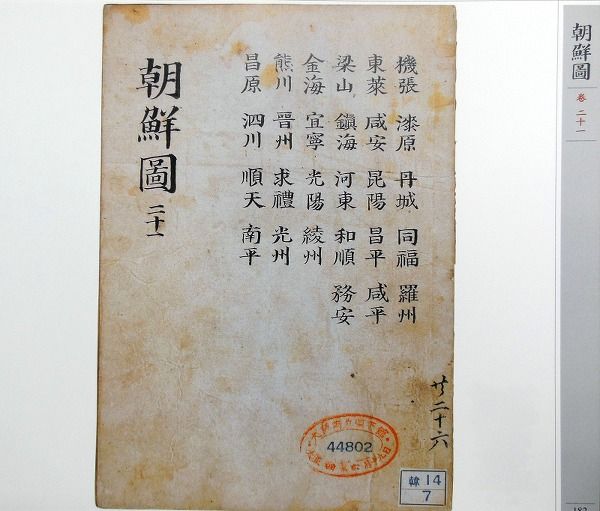 機張 漆原 丹城 同福 羅州
東萊 咸安 昆陽 昌平 咸平
梁山 鎭海 河東 和順 務安
金海 宜寧 光陽 綾州
熊川 晉州 求禮 光州
昌原 泗川 順天 南平
朝鮮圖 二十一
二十六
44802
韓 14
7
朝鮮圖 卷 二十一